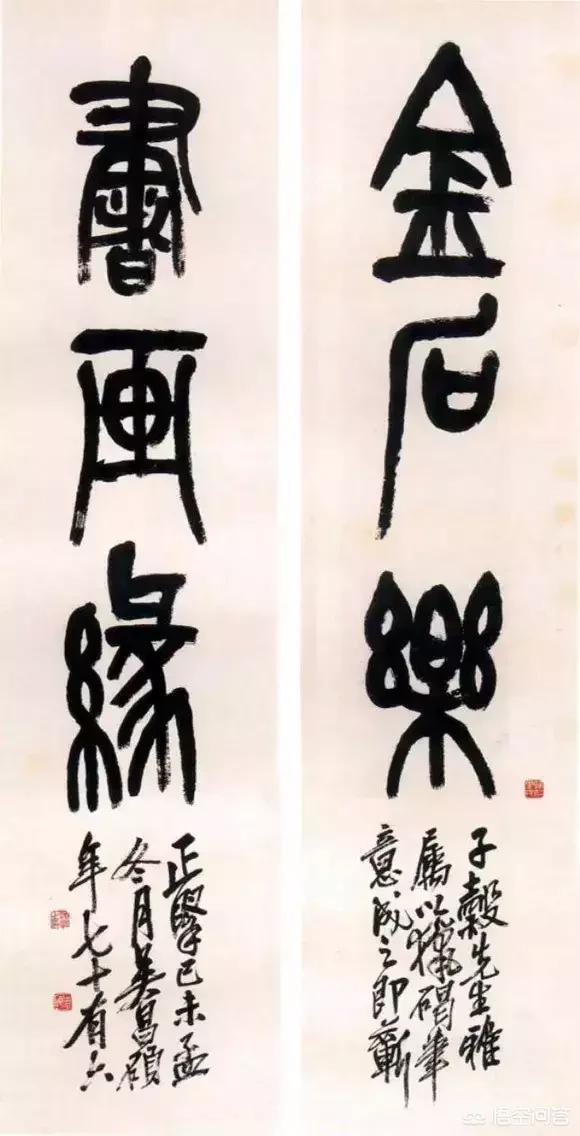 金石樂
子穀先生雅
屬以獵碣筆
意成之即蘄
書画緣
正擘己未孟
冬月吳昌碩
年七十有六
悟空问答